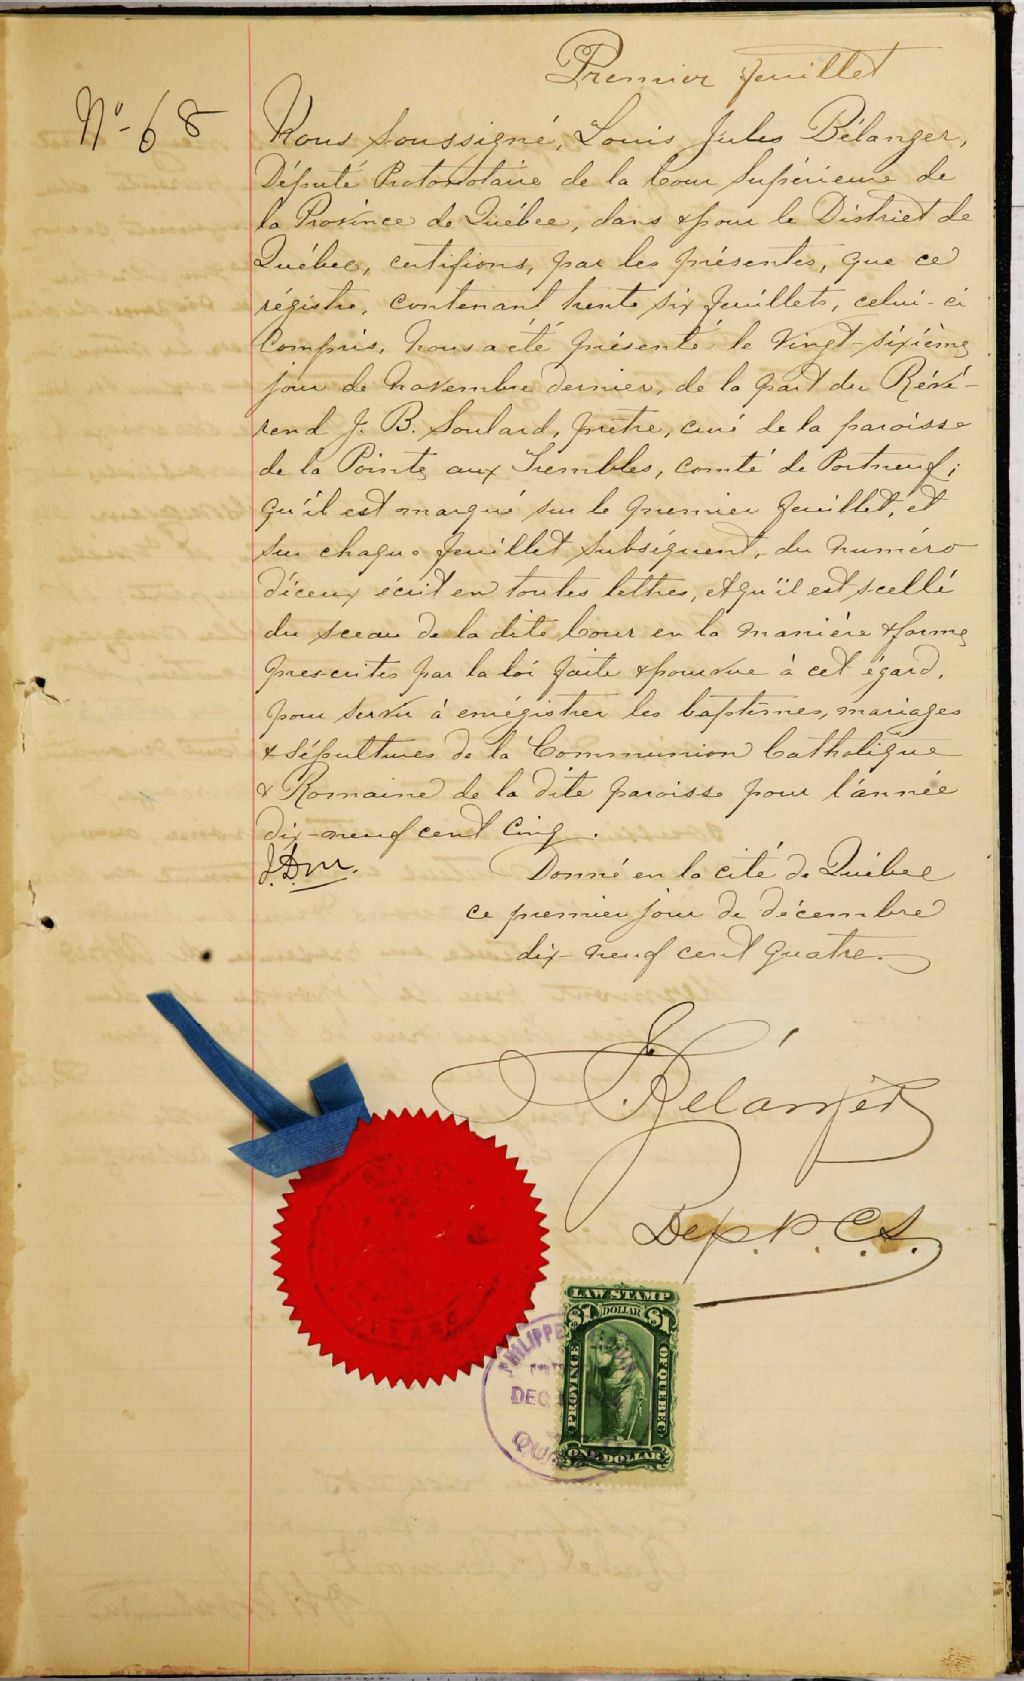 Premier feuillet
No- 68
Nous Soussigné, Louis Jules Bélanger,
Député Protonotaire de la Cour Supérieure de
la Province de Québec, dans & pour le District de
Québec, certifions, par les présentes, que ce
régistre, contenant trente six feuillets, celui-ci
Compris, nous a été présenté le vingt-sixième
jour de novembre dernier, de la part du Révé-
rend J. B. Soulard, prêtre, curé de la paroisse
de la Pointe aux Trembles, comté de Portneuf;
qu'il est marqué sur le premier feuillet, et
sur chaque feuillet subséquent, du numéro
d'iceux écrit en toutes lettres, et qu'il est scellé
du sceau de la dite Cour en la manière & forme
prescrites par la loi faite & pourvue à cet égard,
pour servir à enrégistrer les baptêmes, mariages
& sépultures de la Communion Catholique
& Romaine de la dite paroisse pour l'année
dix-neuf cent cinq.
Donné en la cité de Québec
ce premier jour de décembre
dix-neuf cent quatre.
Bélanger
Dep. P. C. S.
LAW STAMP
$1 DOLLAR $1
PROVINCE OF QUEBEC
ONE DOLLAR
PHILIPPE
DEC